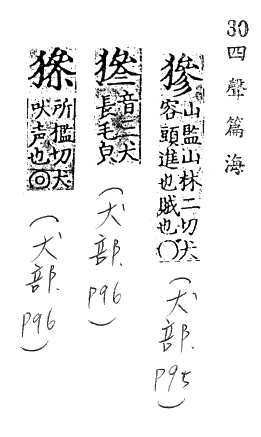 30 四聲篇海
㺑
山監山林二切犬
容頭進也賊也〇
(犬部.P95)
音三犬
長毛皃
(犬部.P96)
所檻切犬
吠声也◎
(犬部.P96)